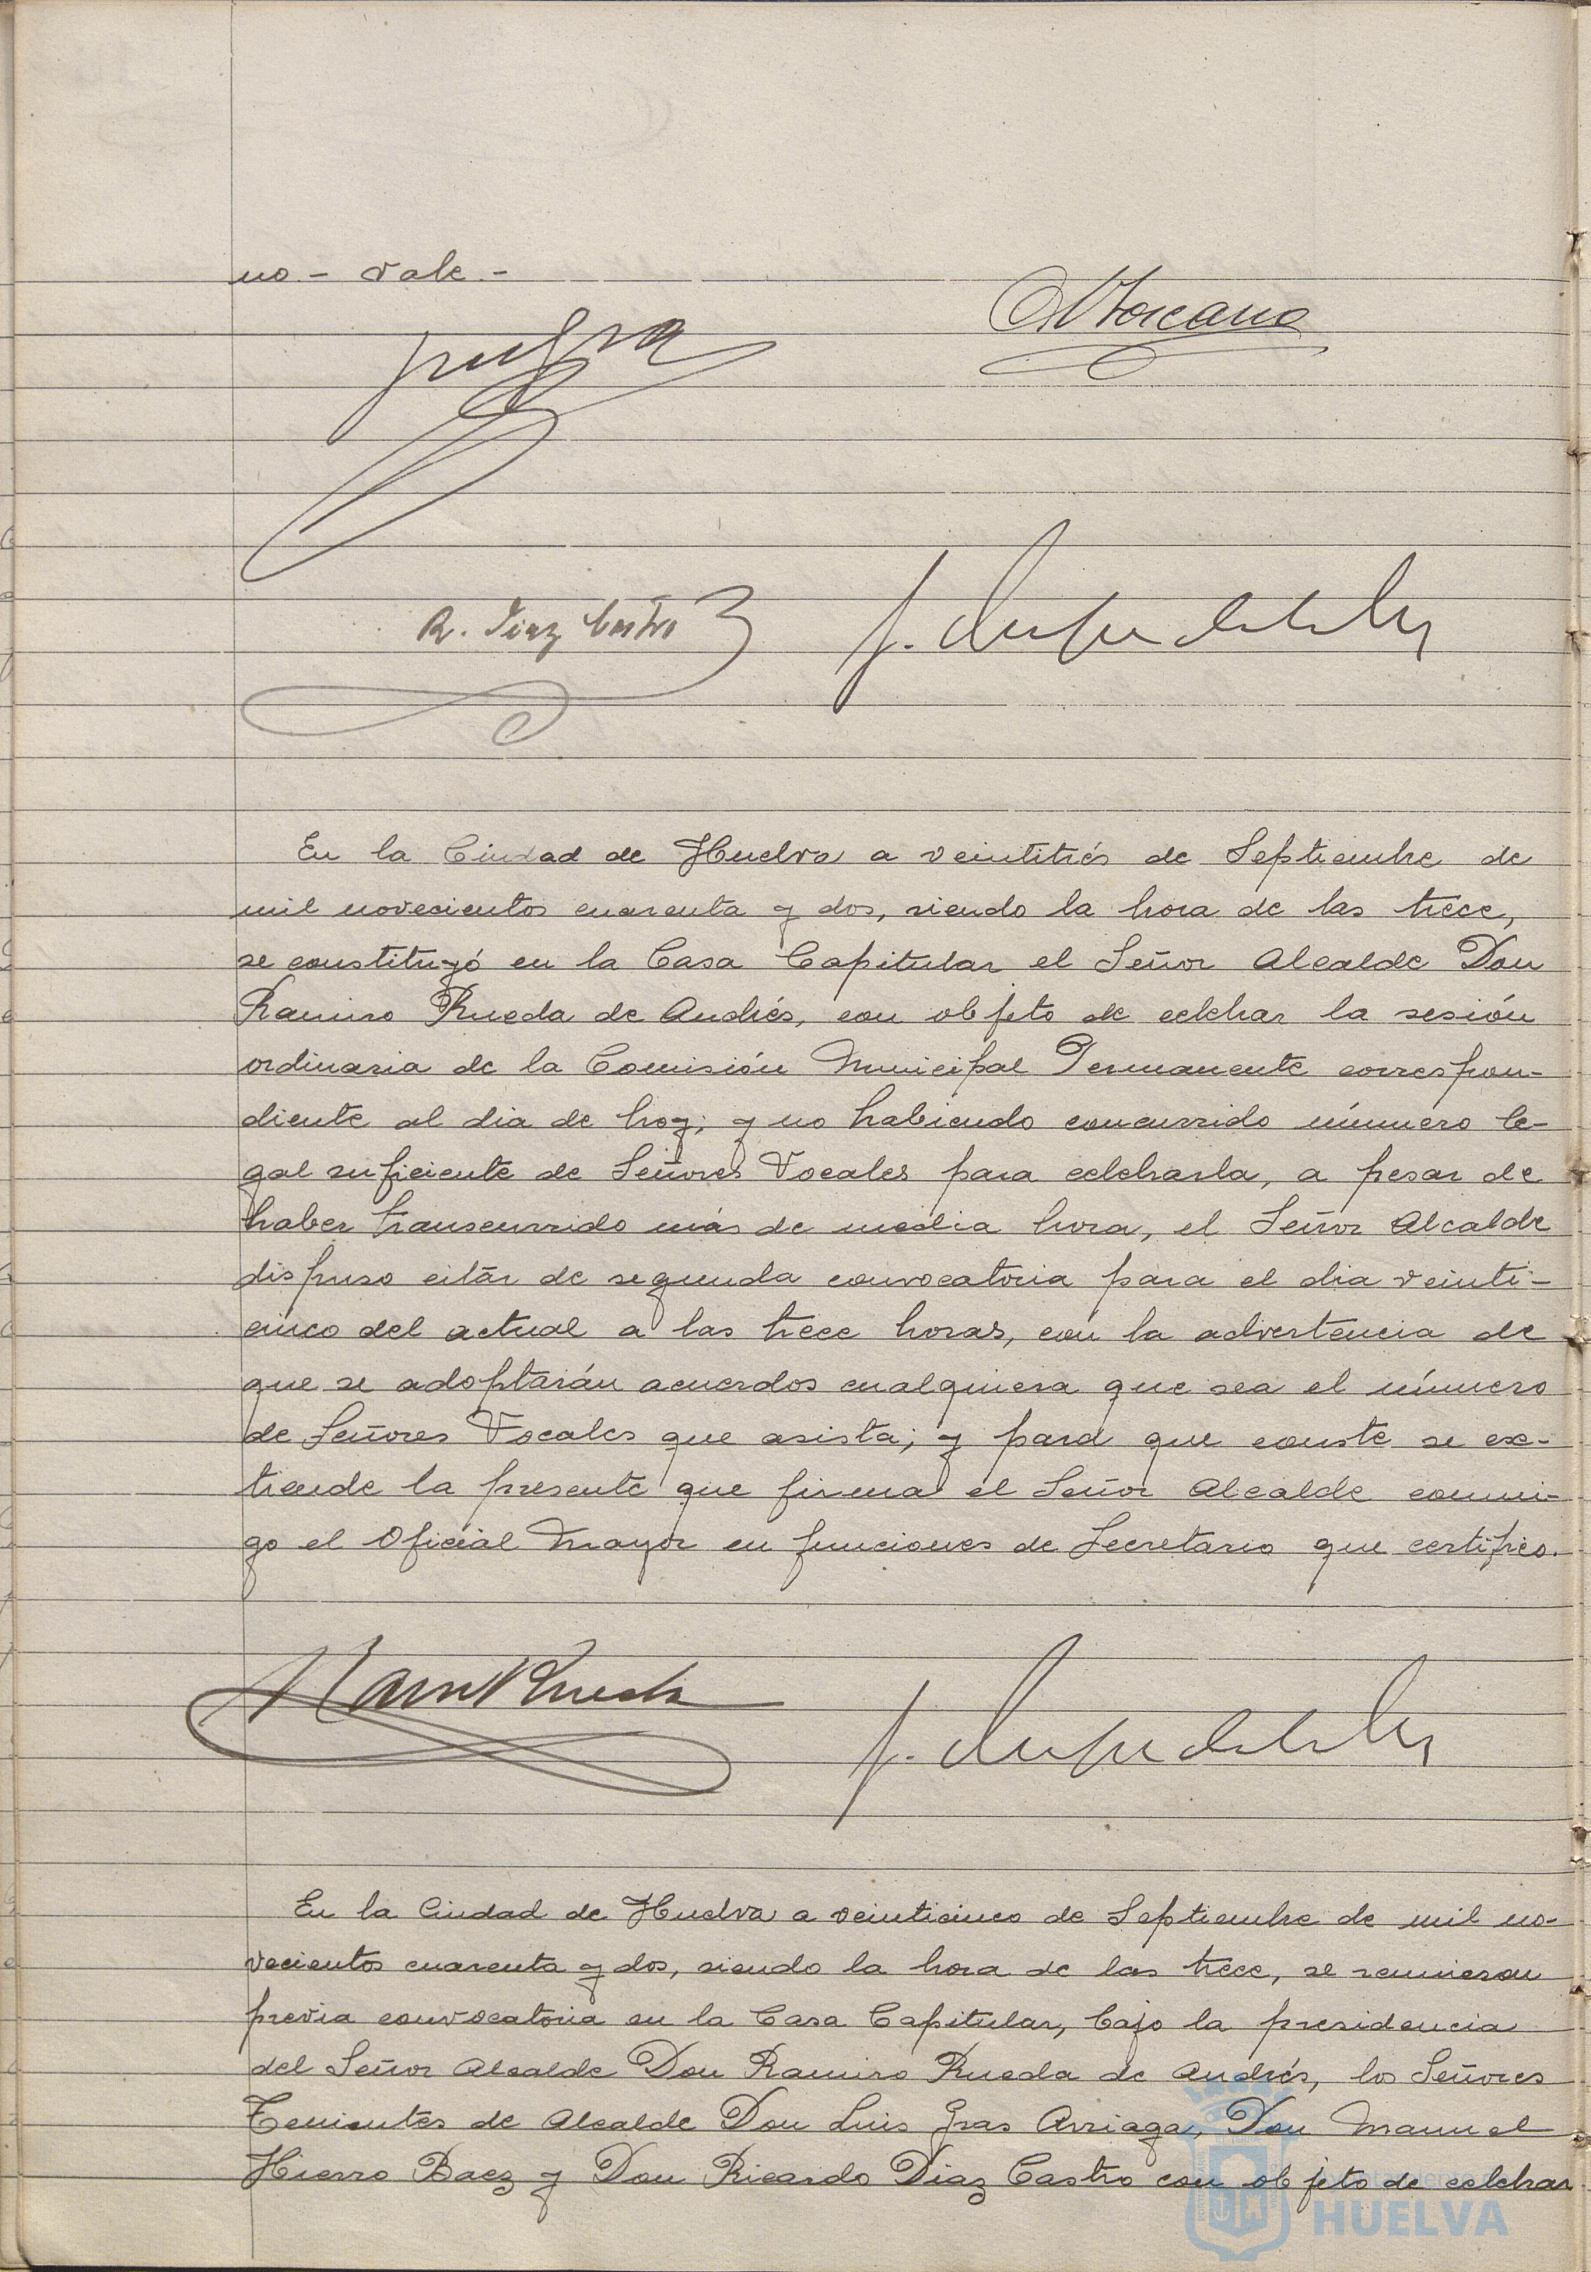 no.- vale.-
R. Diaz Castro
En la Ciudad de Huelva a veintitrés de Septiembre de
mil novecientos cuarenta y dos, siendo la hora de las trece,
se constituyó en la Casa Capitular el Señor Alcalde Don
Ramiro Rueda de Andrés, con objeto de celebrar la sesión
ordinaria de la Comisión Municipal Permanente correspon-
diente al dia de hoy; y no habiendo concurrido número le-
gal suficiente de Señores Vocales para celebrarla, a pesar de
haber transcurrido más de media hora, el Señor Alcalde
dispuso citar de segunda convocatoria para el dia veinti-
cinco del actual a las trece horas, con la advertencia de
que se adoptarán acuerdos cualquiera que sea el número
de Señores Vocales que asista; y para que conste se ex-
tiende la presente que firma el Señor Alcalde conmi-
go el Oficial Mayor en funciones de Secretario que certifico.
Ram Rueda
En la Ciudad de Huelva a veinticinco de Septiembre de mil no-
vecientos cuarenta y dos, siendo la hora de las trece, se reunieron
previa convocatoria en la Casa Capitular, bajo la presidencia
del Señor Alcalde Don Ramiro Rueda de Andrés, los Señores
Tenientes de Alcalde Don Luis Gras Arriaga, Don Manuel
Hierro Baez y Don Ricardo Diaz Castro con objeto de celebrar
HUELVA